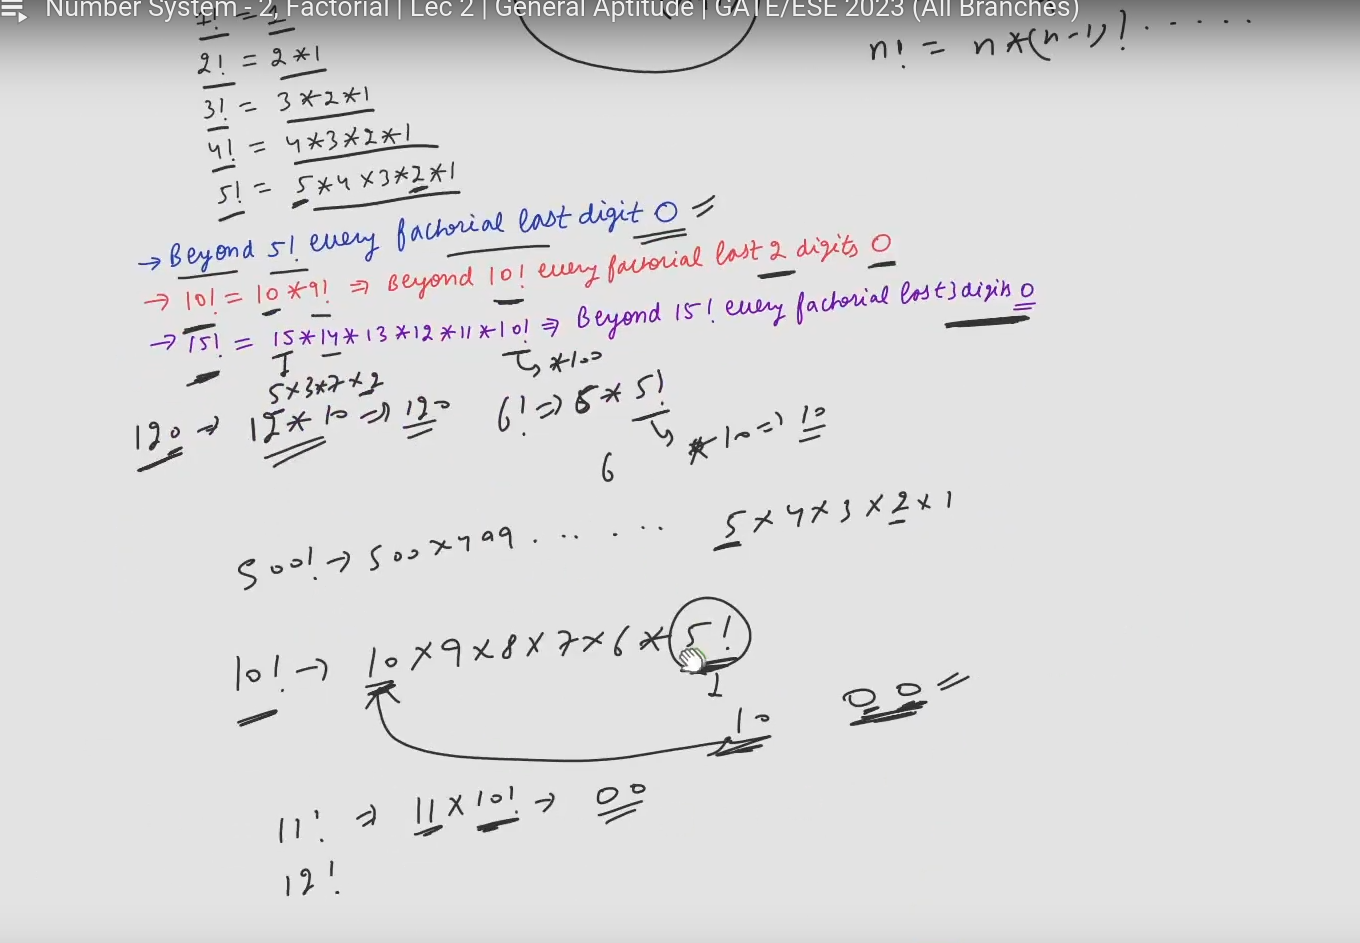 Number System - 2, Factorial | Lec 2 | General Aptitude | GATE/ESE 2023 (All Branches)
n! = n*(n-1)! .....
2! = 2*1
3! = 3*2*1
4! = 4*3*2*1
5! = 5*4×3*2*1
→ Beyond 5! every factorial last digit 0
→ 10! = 10*9! ⇒ Beyond 10! every factorial last 2 digits 0
→ 15! = 15*14*13*12*11*10! ⇒ Beyond 15! every factorial last 3 digits 0
*100
5×3*7×2
120 → 12*10 ⇒ 120 6! ⇒ 6* 5!
*10 ⇒ 10
6
500! → 500×499 . .. . .. 5×4×3×2×1
10! → 10×9×8×7×6*5!
2
10
00
11! ⇒ 11×10! → 00
12!